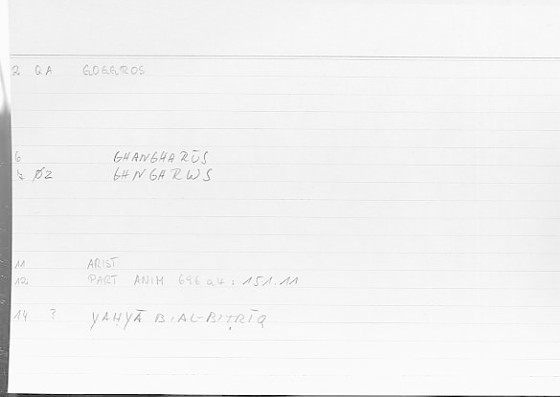 2 QA GOGGROS
6 GHANGHARŪS
½ ØZ GHNGHRWS
11 ARIST
12 PART ANIM 696 a4 : 151.11
14 ? YAḤYĀ B. AL-BIṬRĪQ